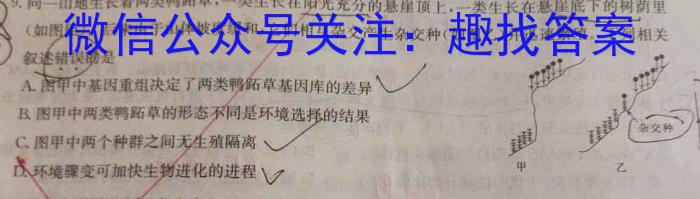 9. 同一山地生长着两类鸭跖草,一类生长在阳光充分的悬崖顶上,一类生长在悬崖底下的树荫里
(如图
微信公众号关注:趣找答案
杂交种
相关
叙述错误的是
A. 图甲中基因重组决定了两类鸭跖草基因库的差异
B. 图甲中两类鸭跖草的形态不同是环境选择的结果
C. 图甲中两个种群之间无生殖隔离
D. 环境骤变可加快生物进化的进程
杂交种
甲
乙